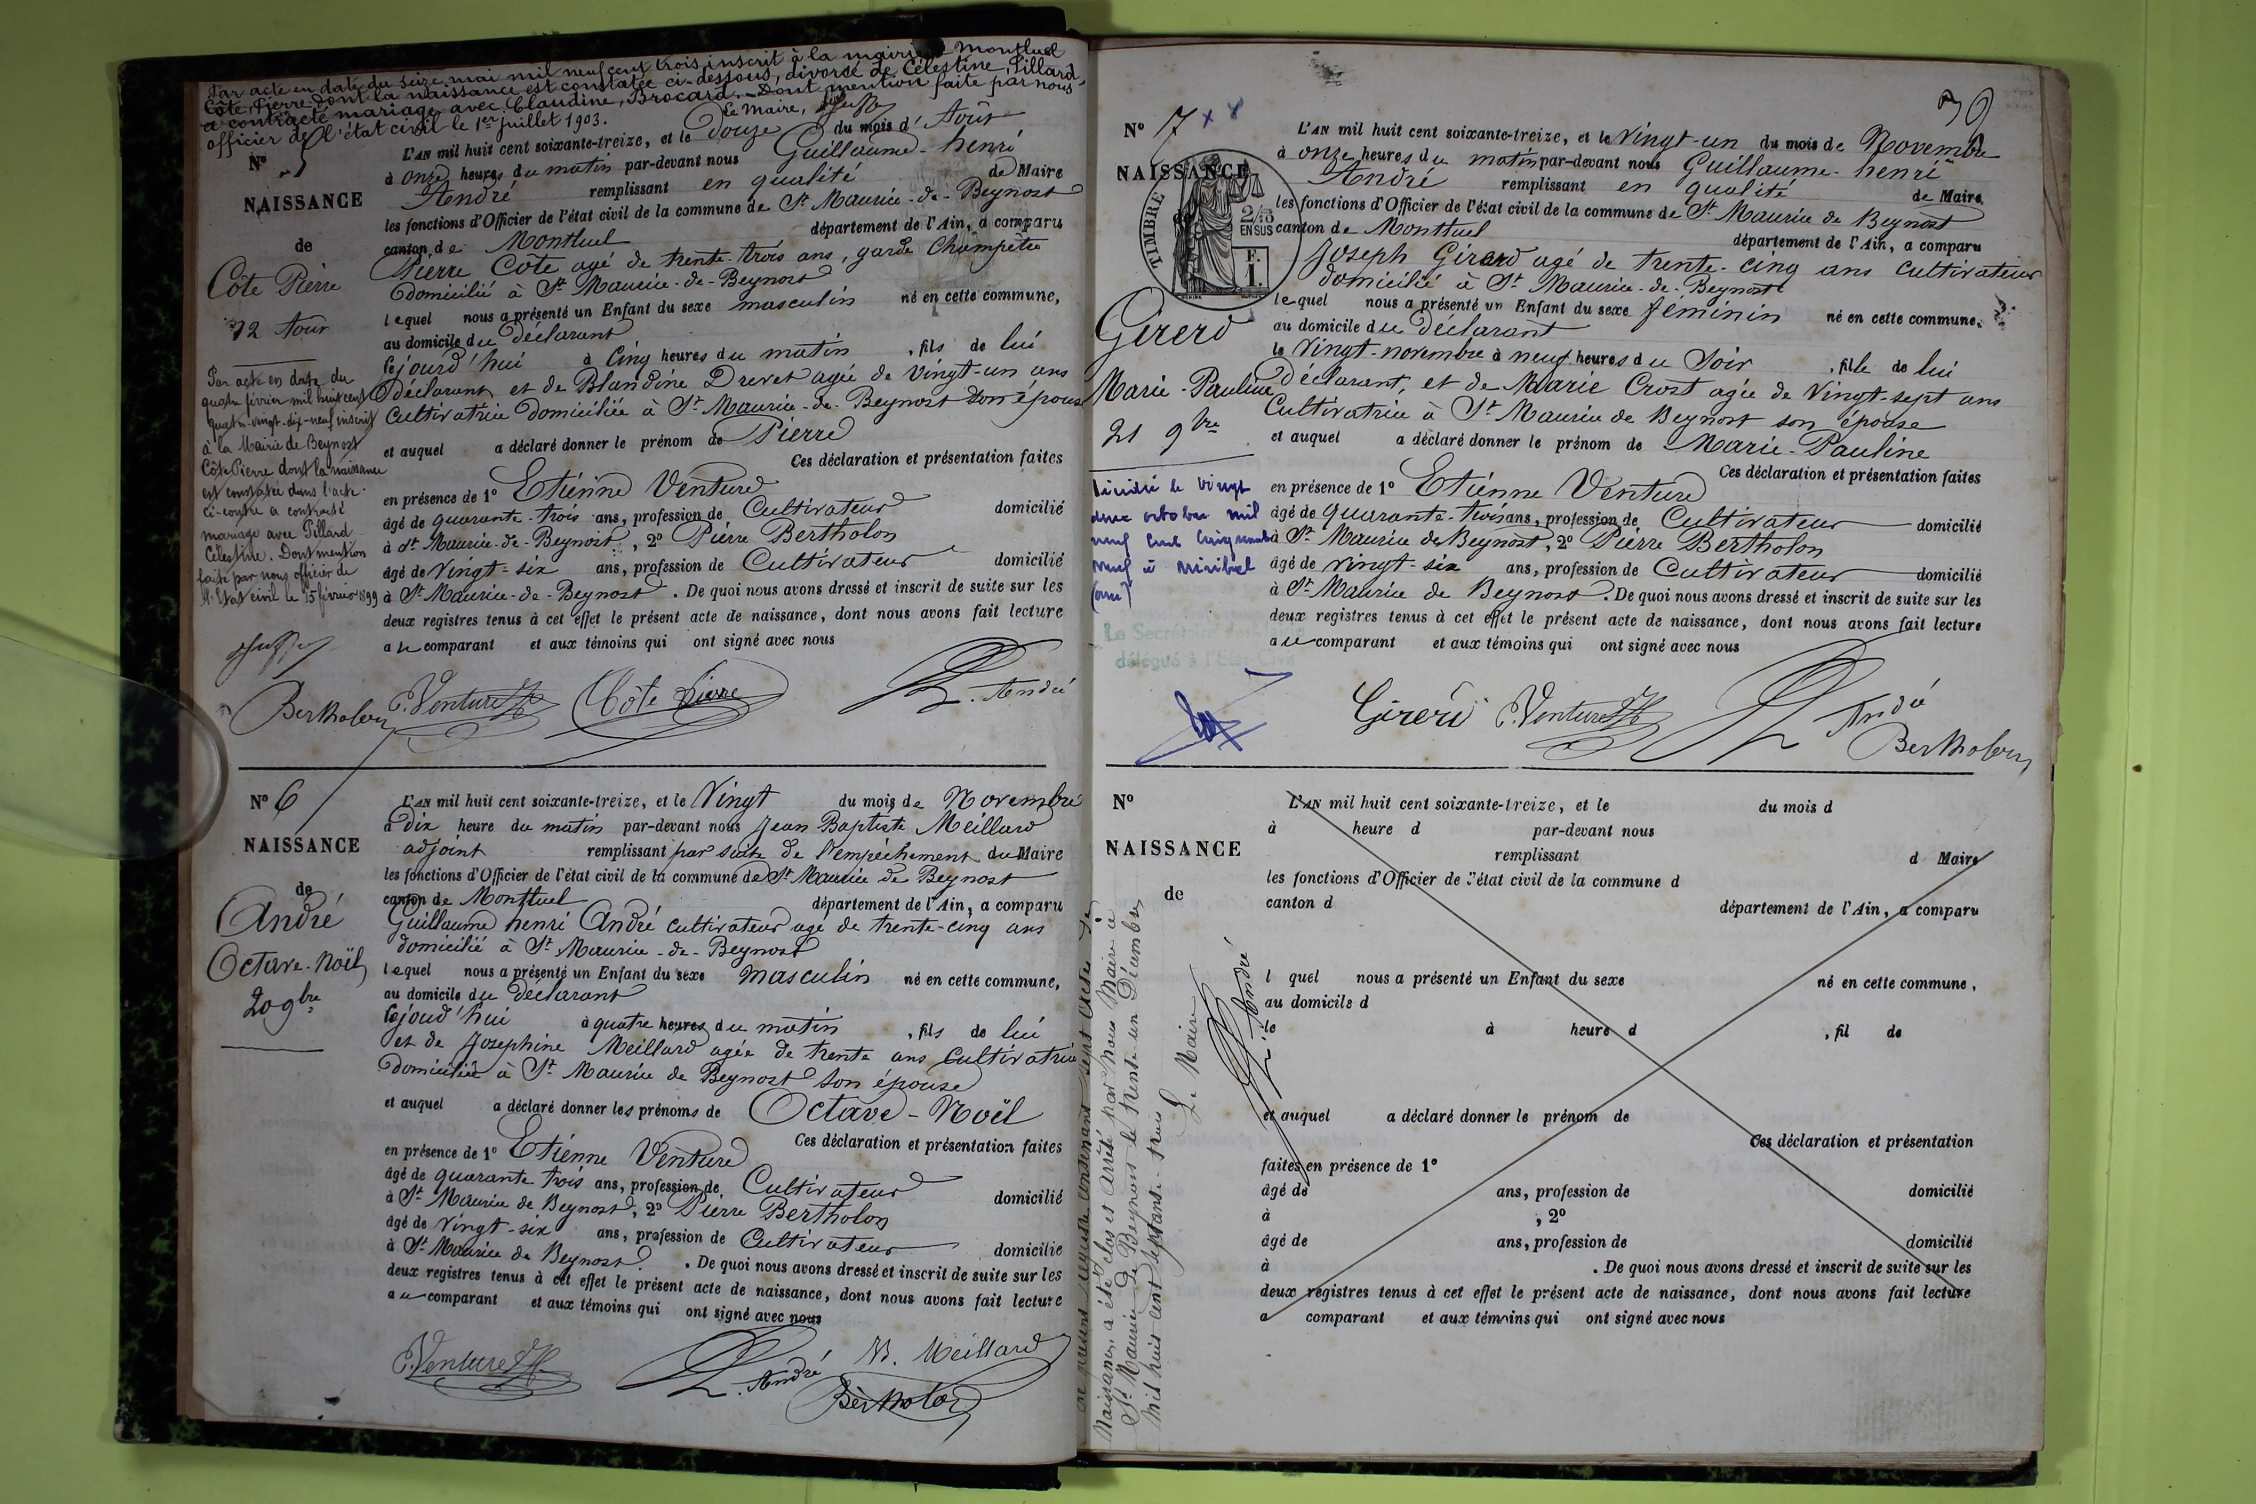 Par acte en date du seize mai mil neuf cent trois, inscrit à la mairie Montluel
Côte Pierre, dont la naissance est constatée ci-dessous, divorcé de Célestine Pillard,
a contracté mariage avec Claudine, Brocard. _ Dont mention faite par nous
officier de l'état civil le 1er juillet 1903.
Le Maire,
N° 5
NAISSANCE
de
Côte Pierre
12 Aout
Par acte en date du
quatre février mil huit cent
quatre-vingt-dix-neuf inscrit
à la Mairie de Beynost
Côte Pierre dont la naissance
est constatée dans l'acte
ci-contre a contracté
mariage avec Pillard
Célestine. Dont mention
faite par nous officier de
l'Etat civil le 15 février 1899
L'AN mil huit cent soixante-treize, et le douze du mois d' Août
à onze heures du matin par-devant nous Guillaume-henri
André remplissant en qualité de Maire
les fonctions d'Officier de l'état civil de la commune de St Maurice-de-Beynost
canton de Montluel département de l'Ain, a comparu
Pierre Côte agé de trente-trois ans, garde Champêtre
domicilié à St Maurice-de-Beynost
lequel nous a présenté un Enfant du sexe masculin né en cette commune,
au domicile du déclarant
cejourd'hui à Cinq heures du matin, fils de lui
déclarant et de Blandine Drevet agée de vingt-un ans
Cultivatrice domiciliée à St Maurice-de-Beynost son épouse
et auquel a déclaré donner le prénom de Pierre
Ces déclaration et présentation faites
en présence de 1° Etiénne Venture
âgé de quarante-trois ans, profession de Cultivateur domicilié
à St Maurice-de-Beynost, 2° Pierre Bertholon
âgé de vingt-six ans, profession de Cultivateur domicilié
à St Maurice-de-Beynost. De quoi nous avons dressé et inscrit de suite sur les
deux registres tenus à cet effet le présent acte de naissance, dont nous avons fait lecture
au comparant et aux témoins qui ont signé avec nous
Bertholon E. Venture Côte Pierre André
N° 6
NAISSANCE
de
André
Octave-Noël
20 9bre
L'AN mil huit cent soixante-treize, et le Vingt du mois de Novembre
à dix heure du matin par-devant nous Jean Baptiste Meillard
adjoint remplissant par suite de l'empéchement du Maire
les fonctions d'Officier de l'état civil de la commune de St Maurice de Beynost
canton de Montluel département de l'Ain, a comparu
Guillaume henri André cultivateur agé de trente-cinq ans
domicilié à St Maurice-de-Beynost
lequel nous a présenté un Enfant du sexe masculin né en cette commune,
au domicile du déclarant
cejoud'hui à quatre heures du matin, fils de lui
et de Josephine Meillard agée de trente ans Cultivatrice
domiciliée à St Maurice de Beynost son épouse
et auquel a déclaré donner les prénoms de Octave-Noël
Ces déclaration et présentation faites
en présence de 1° Etiénne Venture
âgé de quarante trois ans, profession de Cultivateur domicilié
à St Maurice de Beynost, 2° Pierre Bertholon
âgé de vingt-six ans, profession de Cultivateur domicilié
à St Maurice de Beynost. De quoi nous avons dressé et inscrit de suite sur les
deux registres tenus à cet effet le présent acte de naissance, dont nous avons fait lecture
au comparant et aux témoins qui ont signé avec nous
E. Venture André Meillard
Bertholon
39
N° 7 + 8
NAISSANCE
TIMBRE
2/10
EN SUS
F.
1.
Girerd
Marie-Pauline
21 9bre
Décédée le vingt
deux octobre mil
neuf cent cinquante
neuf à Miribel
(Ain)
Le Secrétaire
délégué à l'Etat Civil
L'AN mil huit cent soixante-treize, et le Vingt-un du mois de Novembre
à onze heures du matin par-devant nous Guillaume-henri
André remplissant en qualité de Maire
les fonctions d'Officier de l'état civil de la commune de St Maurice de Beynost
canton de Montluel département de l'Ain, a comparu
Joseph Girerd agé de trente-cinq ans cultivateur
domicilié à St Maurice-de-Beynost
lequel nous a présenté un Enfant du sexe féminin né en cette commune,
au domicile du déclarant
le Vingt-novembre à neuf heures du Soir, fille de lui
déclarant, et de Marie Crost agée de Vingt-sept ans
Cultivatrice à St Maurice de Beynost son épouse
et auquel a déclaré donner le prénom de Marie-Pauline
Ces déclaration et présentation faites
en présence de 1° Etiénne Venture
âgé de quarante-trois ans, profession de Cultivateur domicilié
à St Maurice de Beynost, 2° Pierre Bertholon
âgé de vingt-six ans, profession de Cultivateur domicilié
à St Maurice de Beynost. De quoi nous avons dressé et inscrit de suite sur les
deux registres tenus à cet effet le présent acte de naissance, dont nous avons fait lecture
au comparant et aux témoins qui ont signé avec nous
Girerd E. Venture André
Bertholon
N°
NAISSANCE
de
L'AN mil huit cent soixante-treize, et le du mois d
à heure d par-devant nous
remplissant d Maire
les fonctions d'Officier de l'état civil de la commune d
canton d département de l'Ain, a comparu
l quel nous a présenté un Enfant du sexe né en cette commune,
au domicile d
le à heure d , fil de
et auquel a déclaré donner le prénom de
Ces déclaration et présentation
faites en présence de 1°
âgé de ans, profession de domicilié
à , 2°
âgé de ans, profession de domicilié
à . De quoi nous avons dressé et inscrit de suite sur les
deux registres tenus à cet effet le présent acte de naissance, dont nous avons fait lecture
a comparant et aux témoins qui ont signé avec nous
Le présent registre contenant sept actes de
Naissances, a été clos et arrêté par nous Maire de
St Maurice de Beynost le trente un Décembre
mil huit cent septante-trois
Le Maire
André